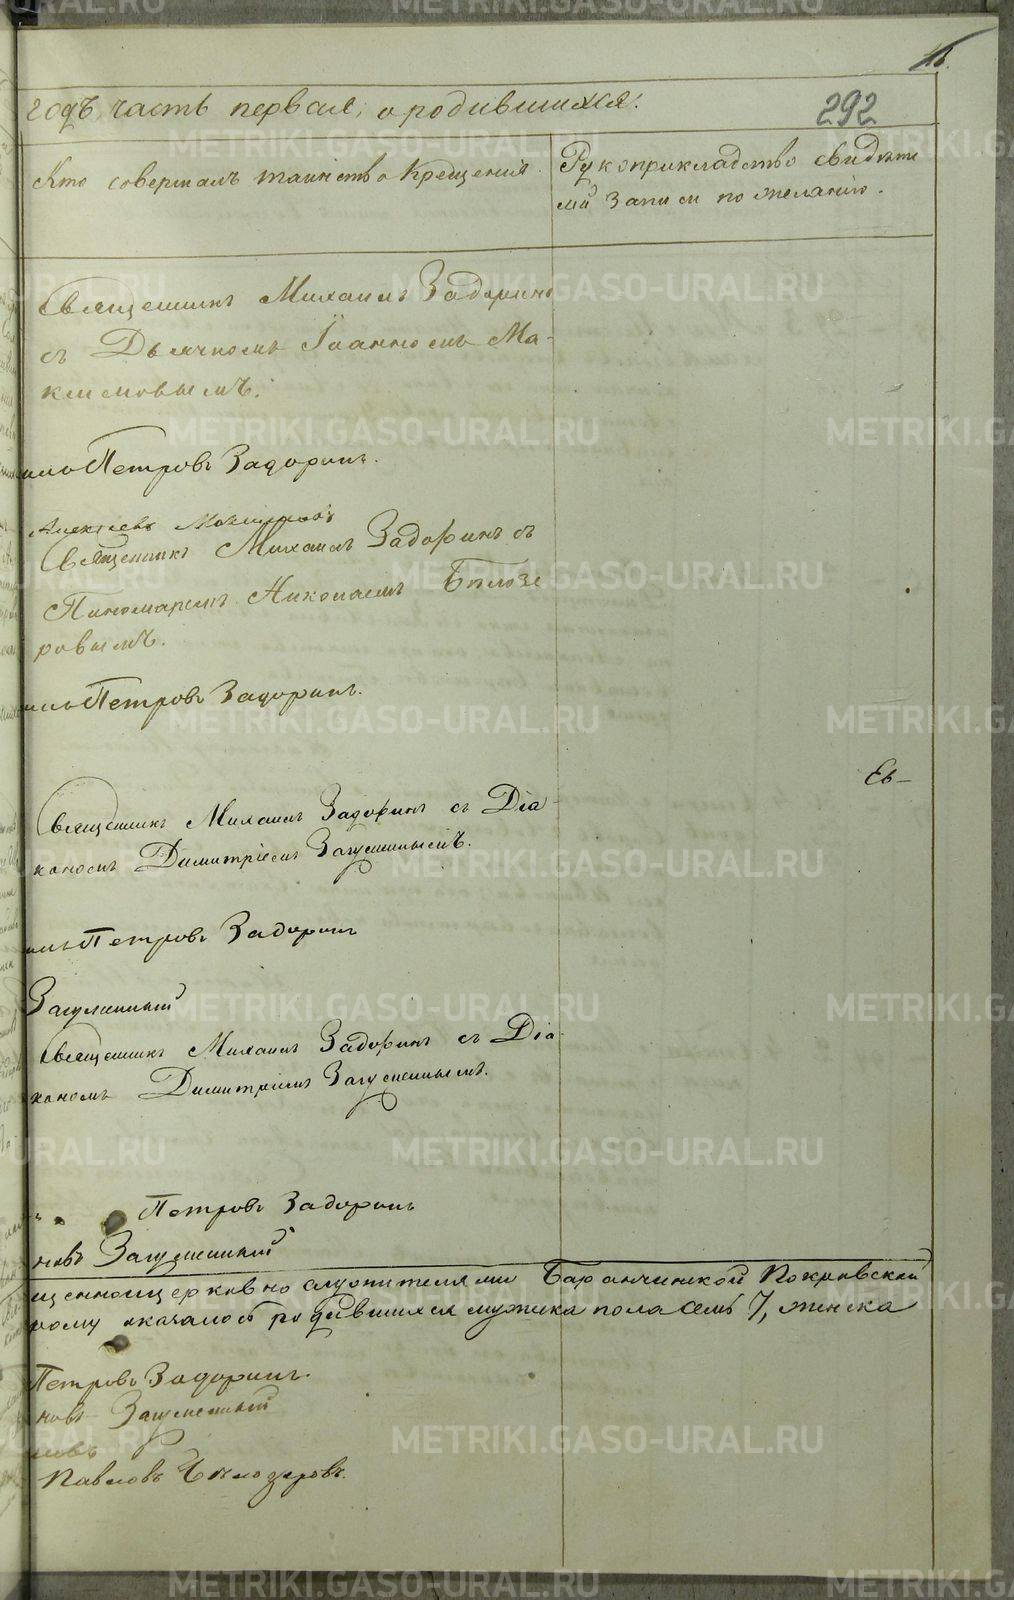 292
годъ, часть первая, о родившихся.
Кто совершалъ таинство Крещения.
Рукоприкладство свидѣте
лей записи по желанію.
Священникъ Михаилъ Задоринъ
съ Дьячкомъ Іоанномъ Ма-
ксимовымъ.
Петровъ Задоринъ.
Алексѣевъ
Священникъ Михаилъ Задоринъ съ
Пономаремъ Николаемъ Бѣлозе
ровымъ.
Петровъ Задоринъ.
Ев-
Священникъ Михаилъ Задоринъ съ Діа
кономъ Димитріемъ Загуменнымъ.
Петровъ Задоринъ
Загуменный
Священникъ Михаилъ Задоринъ съ Діа
кономъ Димитріемъ Загуменнымъ.
Петровъ Задоринъ
новъ Загуменный
щенноцерковнослужителями Баранчинской Покровской
рому оказалось родившихся мужска пола семь 7, женска
Петровъ Задоринъ.
новъ Загуменный
мовъ
Павловъ Бѣлозеровъ.
METRIKI.GASO-URAL.RU